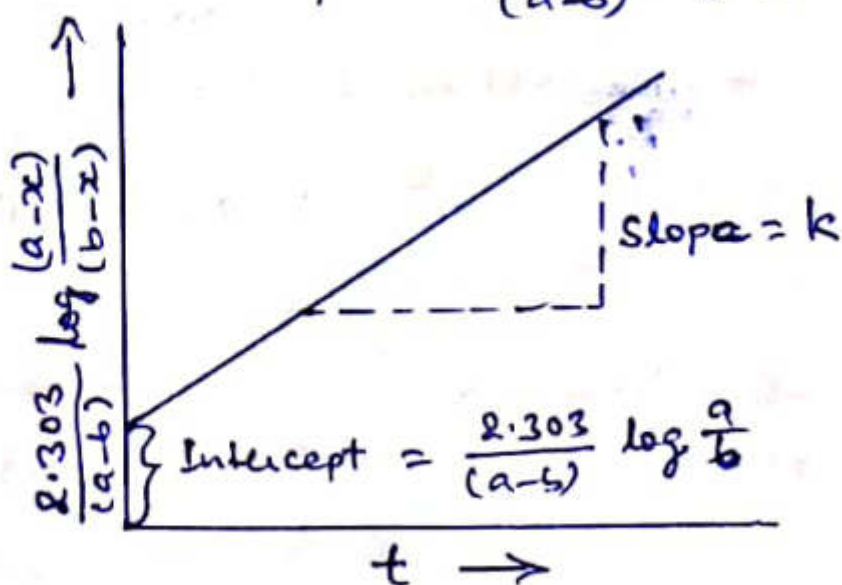 (a-b)
2.303/(a-b) log (a-x)/(b-x) →
Slope = k
Intercept = 2.303/(a-b) log a/b
t →